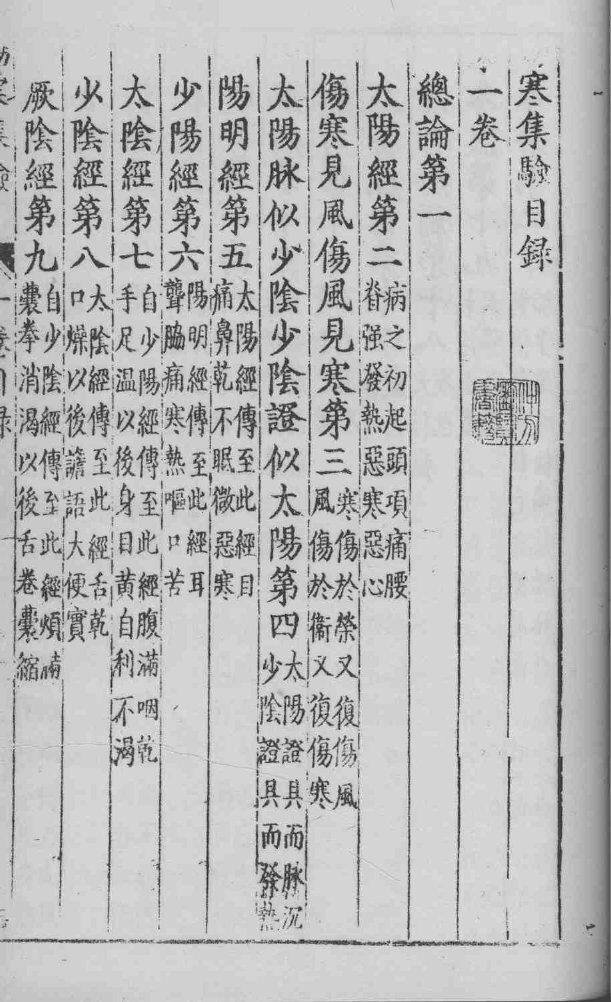 寒集驗目録
一卷
總論第一
太陽經第二
病之初起頭項痛腰
脊强發熱惡寒惡心
傷寒見風傷風見寒第三
寒傷於榮又復傷風
風傷於衞又復傷寒
太陽脉似少陰少陰證似太陽第四
太陽證具而脉沉
少陰證具而發熱
陽明經第五
太陽經傳至此經目
痛鼻乾不眠微惡寒
少陽經第六
陽明經傳至此經耳
聾脇痛寒熱嘔口苦
太陰經第七
自少陽經傳至此經腹滿咽乾
手足温以後身目黄自利不渴
少陰經第八
太陰經傳至此經舌乾
口燥以後譫語大便實
厥陰經第九
自少陰經傳至此經煩滿
囊拳消渴以後舌卷囊縮